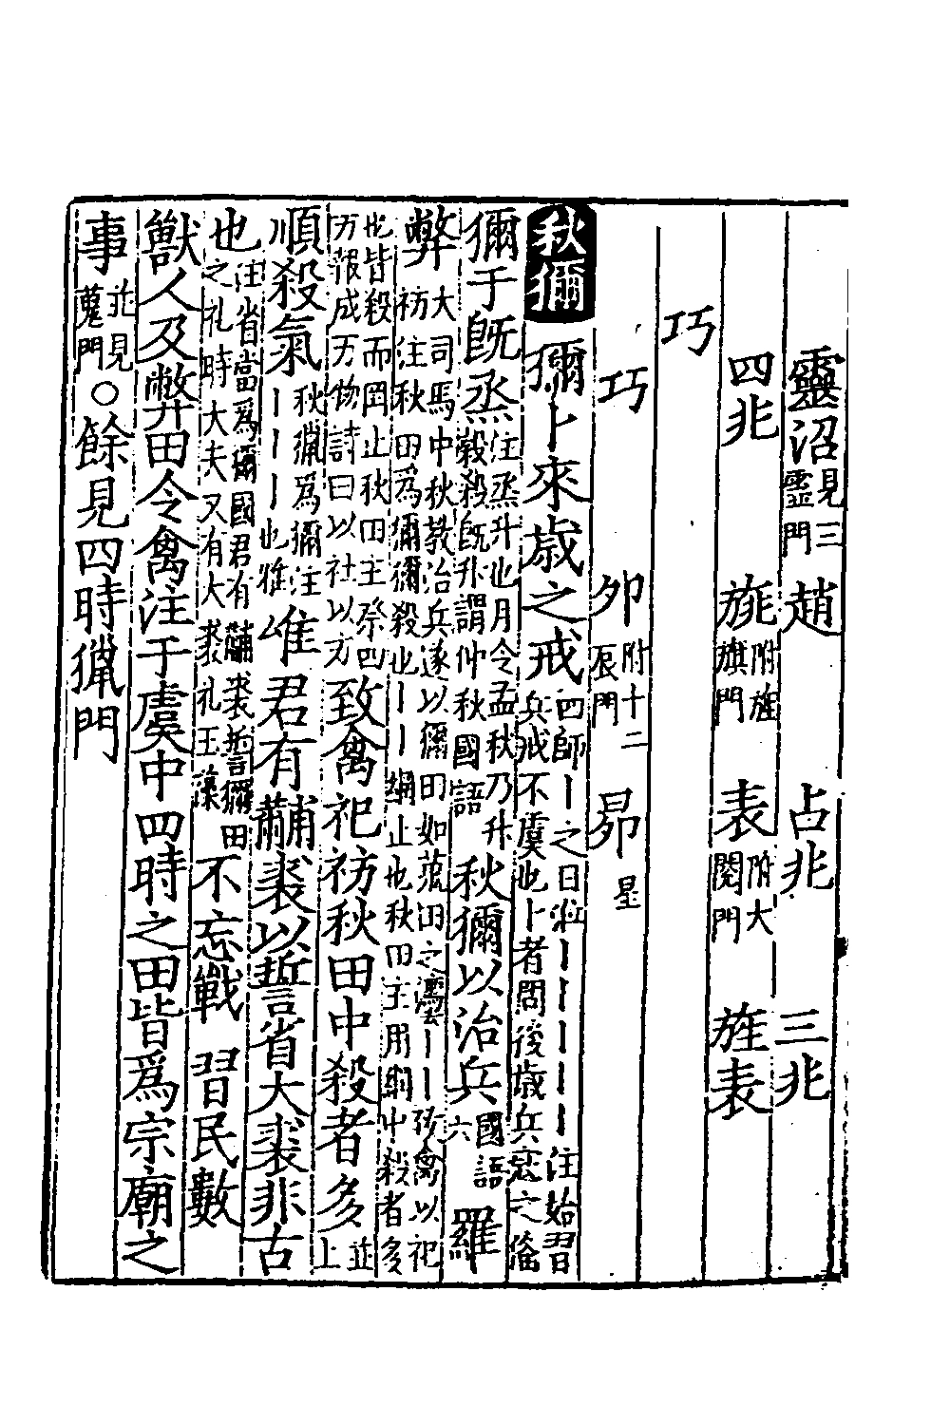 靈沼見三靈門 趙 占兆 三兆
四兆 旐附旌旗門 表附大閱門 旌表
巧
巧 卯附十二辰門 昴星
秋獮 獮卜來歲之戒四師丨之日涖丨丨丨丨丨注始習兵戒不虞也卜者問後歲兵寇之俻
獮于旣烝注烝升也月令孟秋乃升穀殺旣升謂仲秋國語 秋獮以治兵國語六 羅
弊大司馬中秋教治兵遂以獮田如蒐田之灋丨丨致禽以祀祊注秋田爲獮獮殺也丨丨網止也秋田主用罔中殺者多
也皆殺而罔止秋田主祭四方報成万物詩曰以社以方 致禽祀祊秋田中殺者多並上
順殺氣秋獵爲獮注丨丨丨也雅 唯君有黼裘以誓省大裘非古
也注省當爲獮國君有黼裘誓獮田之礼時大夫又有大裘礼玉藻 不忘戰 習民數
獸人及弊田令禽注于虞中四時之田皆爲宗廟之
事並見蒐門○餘見四時獵門